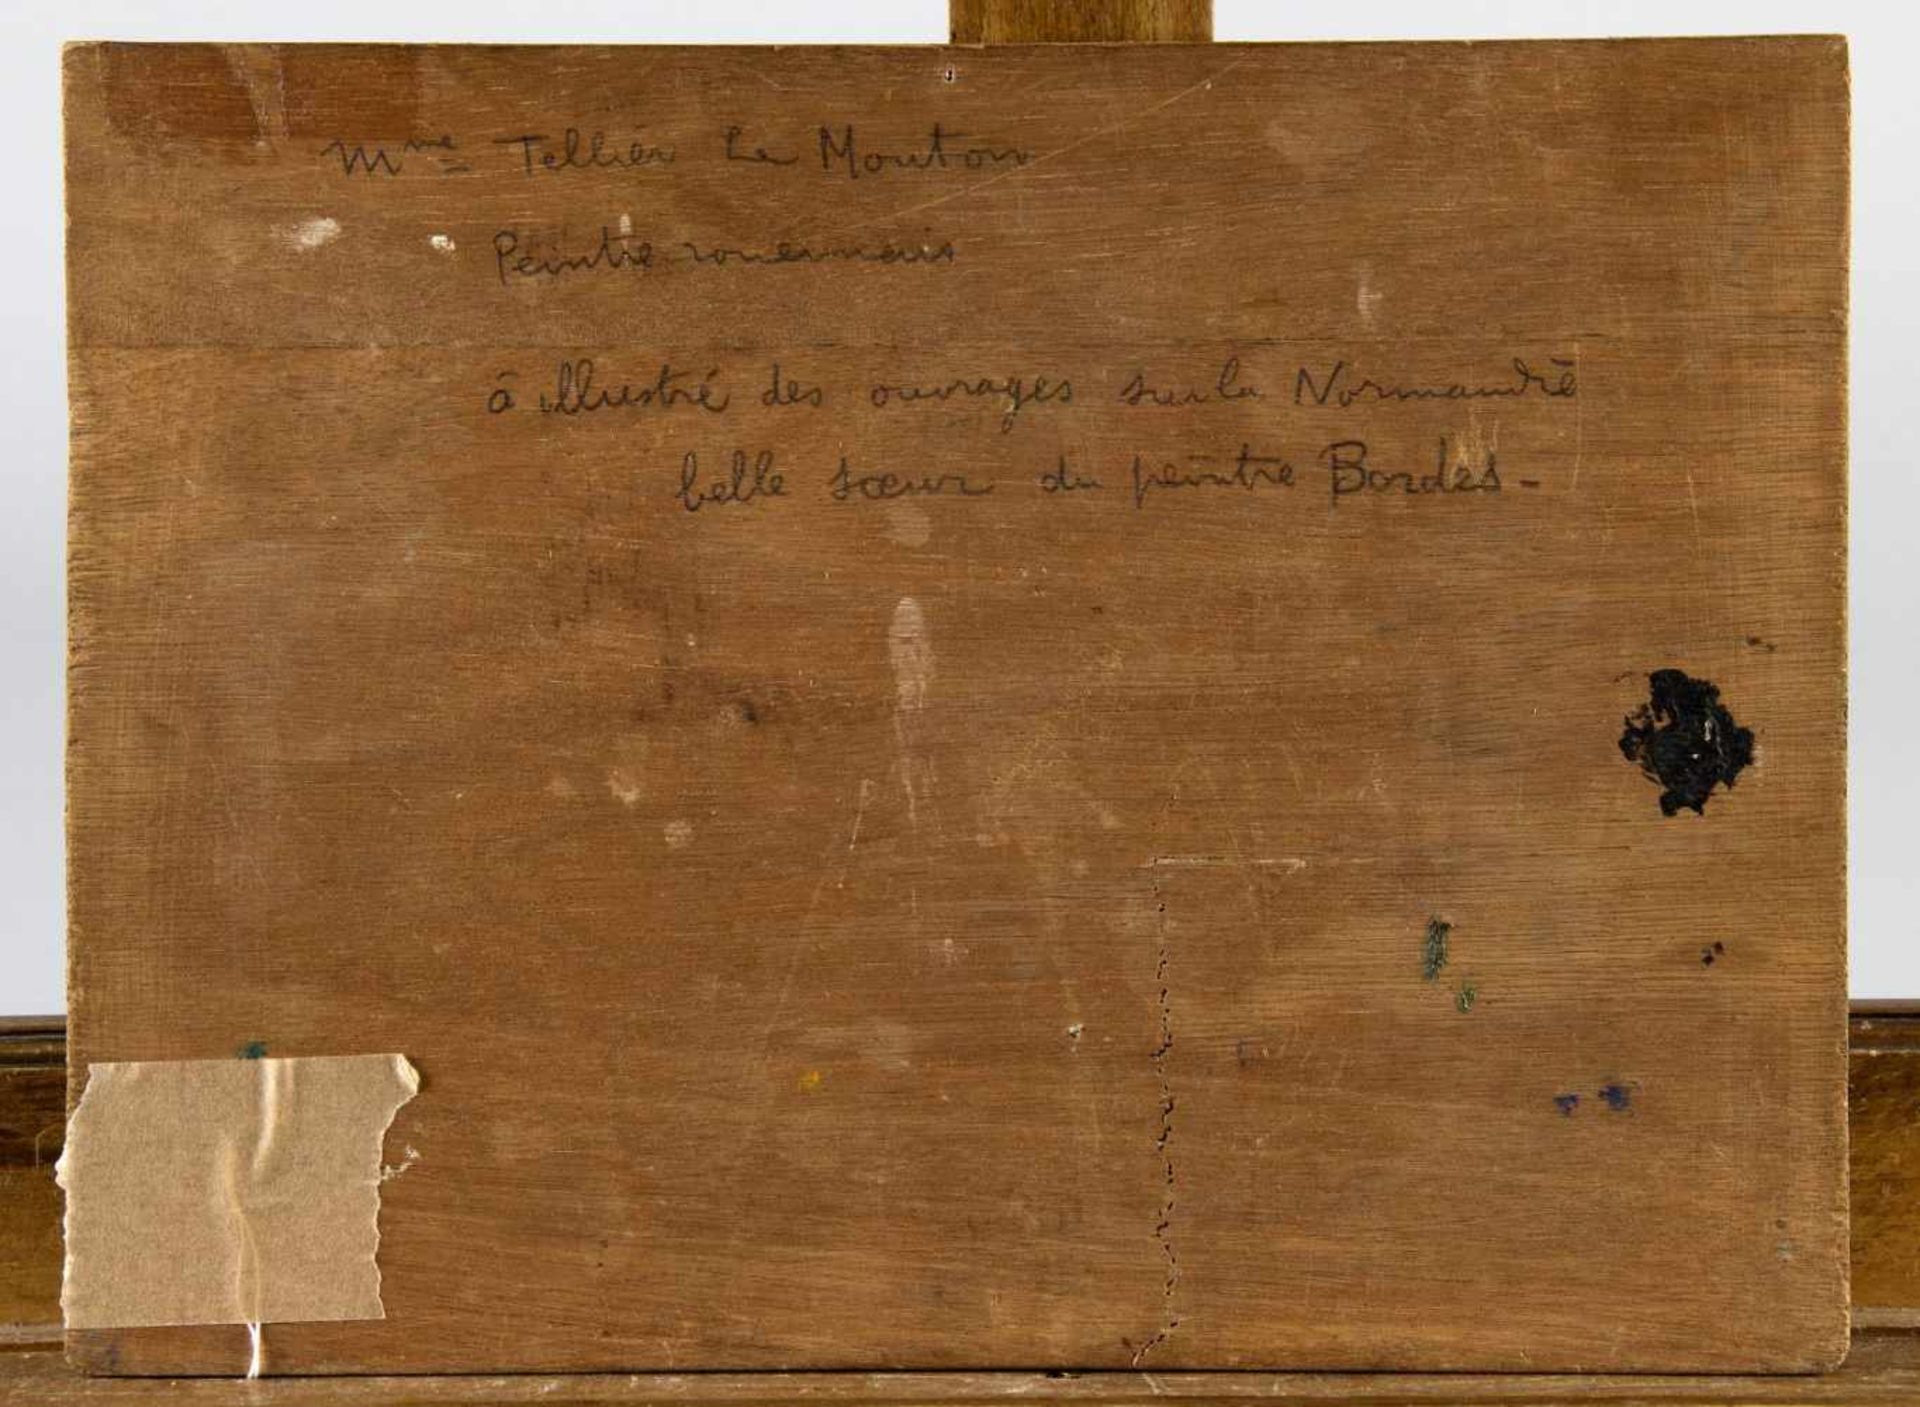 Mme Tellier Le Mouton
Peintre rouennais
à illustré des ouvrages sur la Normandie
belle sœur du peintre Bordes -